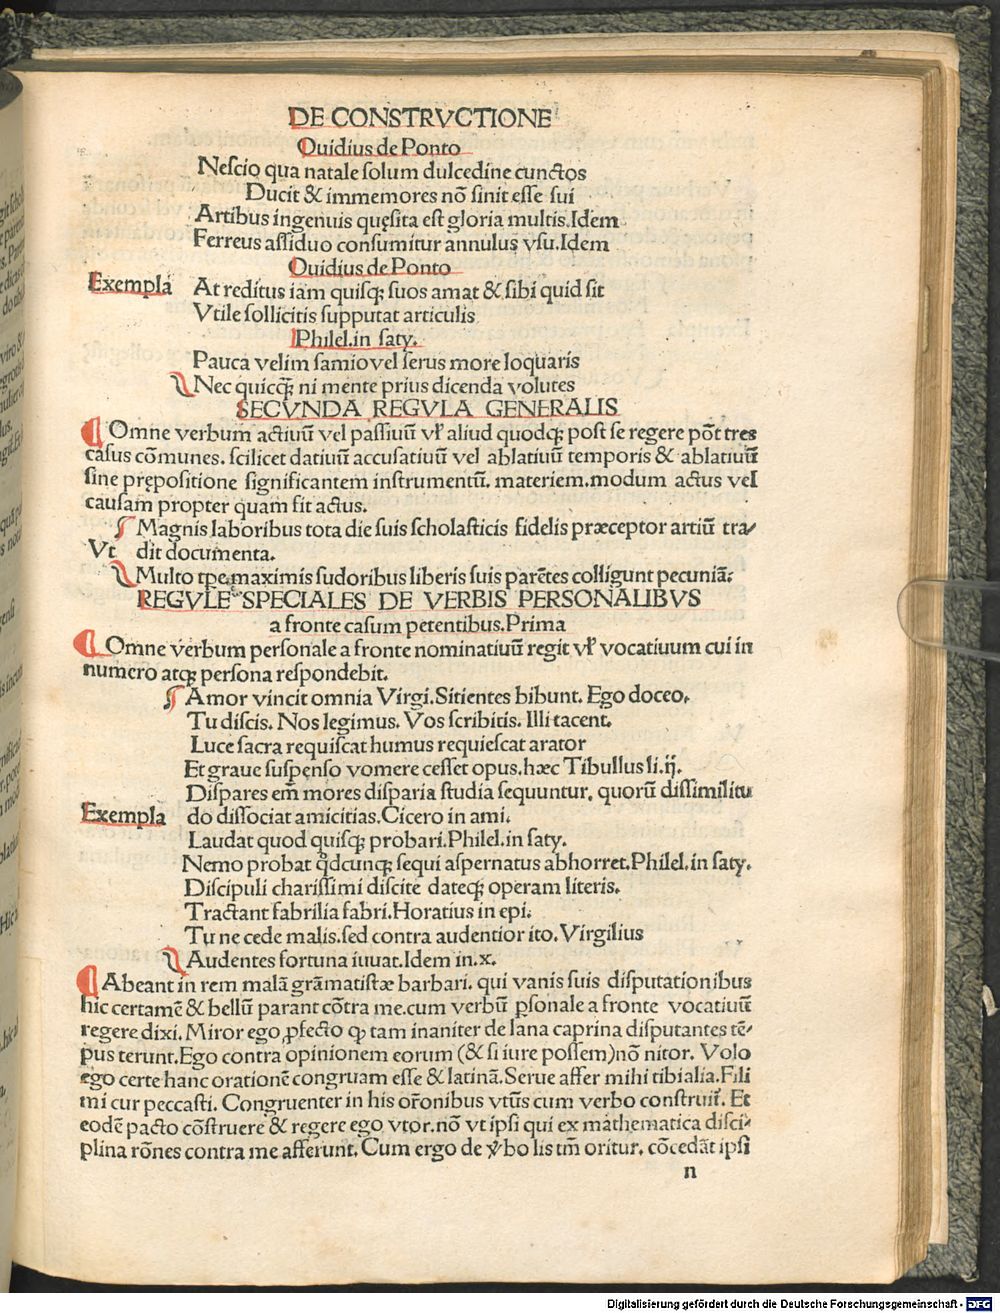 DE CONSTRVCTIONE
Ouidius de Ponto
Nescio qua natale solum dulcedine cunctos
Ducit & immemores nō sinit esse sui
Artibus ingenuis quęsita est gloria multis. Idem
Ferreus assiduo consumitur annulus vsu. Idem
Ouidius de Ponto
Exempla At reditus iam quisq; suos amat & sibi quid sit
Vtile sollicitis supputat articulis
Philel. in saty.
Pauca velim samio vel serus more loquaris
Nec quicq̄; ni mente prius dicenda volutes
SECVNDA REGVLA GENERALIS
Omne verbum actiuū vel passiuū vł aliud quodq; post se regere pōt tres
casus cōmunes. scilicet datiuū accusatiuū vel ablatiuū temporis & ablatiuū
sine prępositione significantem instrumentū. materiem. modum actus vel
causam propter quam fit actus.
Magnis laboribus tota die suis scholasticis fidelis præceptor artiū tra-
Vt dit documenta.
Multo tpe maximis sudoribus liberis suis parētes colligunt pecuniā.
REGVLE SPECIALES DE VERBIS PERSONALIBVS
a fronte casum petentibus. Prima
Omne verbum personale a fronte nominatiuū regit vł vocatiuum cui in
numero atq; persona respondebit.
Amor vincit omnia Virgi. Sitientes bibunt. Ego doceo.
Tu discis. Nos legimus. Vos scribitis. Illi tacent.
Luce sacra requiscat humus requiescat arator
Et graue suspenso vomere cesset opus. hæc Tibullus li. ij.
Dispares em̄ mores disparia studia sequuntur. quorū dissimilitu
Exempla do dissociat amicitias. Cicero in ami.
Laudat quod quisq; probari. Philel. in saty.
Nemo probat qdcunq; sequi aspernatus abhorret. Philel. in saty.
Discipuli charissimi discite dateq; operam literis.
Tractant fabrilia fabri. Horatius in epi.
Tu ne cede malis. sed contra audentior ito. Virgilius
Audentes fortuna iuuat. Idem in. x.
Abeant in rem malā grāmatistæ barbari. qui vanis suis disputationibus
hic certamē & bellū parant cōtra me. cum verbū ꝑsonale a fronte vocatiuū
regere dixi. Miror ego ꝓfecto ꝙ tam inaniter de lana caprina disputantes tē-
pus terunt. Ego contra opinionem eorum (& si iure possem) nō nitor. Volo
ego certe hanc orationē congruam esse & latinā. Serue affer mihi tibialia. Fili
mi cur peccasti. Congruenter in his or̄onibus vtūs cum verbo construit̄. Et
eodē pacto cōstruere & regere ego vtor. nō vt ipsi qui ex mathematica disci-
plina rōnes contra me afferunt. Cum ergo de v̄bo lis tm̄ oritur. cōcedāt ipsi
n
Digitalisierung gefördert durch die Deutsche Forschungsgemeinschaft - DFG